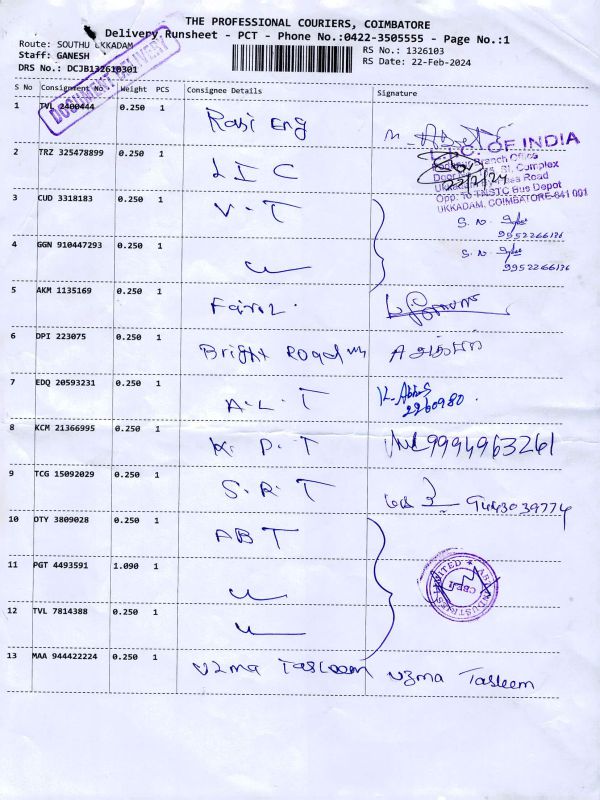 THE PROFESSIONAL COURIERS, COIMBATORE
Delivery Runsheet - PCT - Phone No.:0422-3505555 - Page No.:1
Route: SOUTHU UKKADAM
Staff: GANESH
DRS No.: DCJB132610301
RS No.: 1326103
RS Date: 22-Feb-2024
DOCUMENT DELIVERY
S No Consignment No. Weight PCS Consignee Details Signature
1 TVL 2400444 0.250 1 Rabi Eng
2 TRZ 325478899 0.250 1 L I C
L.I.C. OF INDIA
Branch Office
Complex
Road
Opp. To TNSTC Bus Depot
UKKADAM, COIMBATORE-641 001
3 CUD 3318183 0.250 1 V. T S. N.
9952266136
4 GGN 910447293 0.250 1 S. N.
9952266136
5 AKM 1135169 0.250 1
6 DPI 223075 0.250 1 Bright Road
7 EDQ 20593231 0.250 1 A. L. T K. Abbas
2260980.
8 KCM 21366995 0.250 1 K. P. T 9994963261
9 TCG 15092029 0.250 1 S. R. T 9443039774
10 OTY 3809028 0.250 1 ABT
11 PGT 4493591 1.090 1
INDUSTRIES LIMITED
CBE
12 TVL 7814388 0.250 1
13 MAA 944422224 0.250 1 Uzma Tasleem Uzma Tasleem